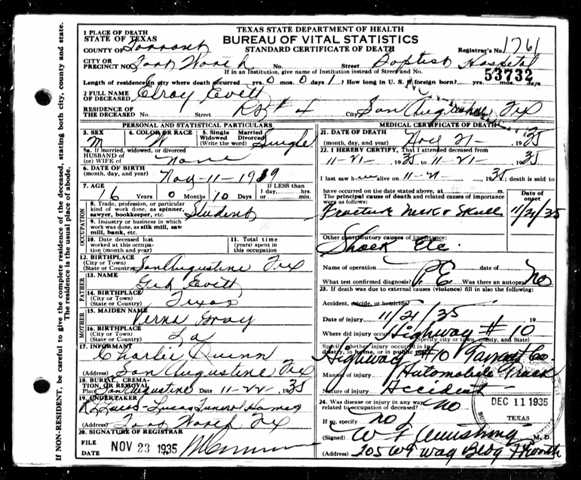 TEXAS STATE DEPARTMENT OF HEALTH
BUREAU OF VITAL STATISTICS
STANDARD CERTIFICATE OF DEATH
1 PLACE OF DEATH
STATE OF TEXAS
COUNTY OF Tarrant
Registrar's No. 1761
CITY OR PRECINCT NO. Fort Worth No. Street Baptist Hospital
53732
Length of residence in city where death occurred yrs. 0 mos. 0 days 1
2 FULL NAME OF DECEASED Elroy Evett
RESIDENCE OF THE DECEASED No. Street Rost 4 City San Augustine, Tex
PERSONAL AND STATISTICAL PARTICULARS
3. SEX M
4. COLOR OR RACE W
5. Single Widowed Married Divorced (Write the word) Single
5a. If married, widowed, or divorced
HUSBAND OF or WIFE OF None
6. DATE OF BIRTH (month, day, and year) Nov-11-1919
7. AGE 16 Years 0 Months 10 Days IF LESS than 1 day, hrs. min.
OCCUPATION
8. Trade, profession, or particular kind of work done, as spinner, sawyer, bookkeeper, etc. Student
9. Industry or business in which work was done, as silk mill, saw mill, bank, etc.
10. Date deceased last worked at this occupation (month and year)
11. Total time (years) spent in this occupation
12. BIRTHPLACE (City or Town) (State or Country) San Augustine Tex
FATHER
13. NAME Evett
14. BIRTHPLACE (City or Town) (State or Country) Texas
MOTHER
15. MAIDEN NAME Verna Gray
16. BIRTHPLACE (City or Town) (State or Country) La
17. INFORMANT Charlie Quinn
(Address) San Augustine Tex
18. BURIAL, CREMATION, OR REMOVAL
Place San Augustine Date 11-22-1935
19. UNDERTAKER Lucas Funeral Home
(Address) Fort Worth Tex
20. SIGNATURE OF REGISTRAR
FILE DATE NOV 23 1935
MEDICAL CERTIFICATE OF DEATH
21. DATE OF DEATH (month, day, and year) Nov 21 1935
22. I HEREBY CERTIFY, That I attended deceased from
11-21- 1935 to 11-21- 1935
I last saw h alive on 11-21 1935 death is said
to have occurred on the date stated above, at m.
The principal cause of death and related causes of importance were as follows:
Date of onset
Fracture Neck & Skull 11/21/35
Other contributory causes of importance:
Shock Etc.
Name of operation date of
What test confirmed diagnosis? P.E. Was there an autopsy? No
23. If death was due to external causes (violence) fill in also the following:
Accident, suicide, or homicide?
Date of injury 11/21/35 19
Where did injury occur? Highway # 10
Highway #10 Tarrant Co
Manner of injury Automobile Truck
Nature of injury Accident
24. Was disease or injury in any way related to occupation of deceased? No
If so, specify no
(Signed) W F Armstrong M. D.
(Address) 205 Wg Wag Bldg Ft Worth
DEC 11 1935
TEXAS
NON-RESIDENT, be careful to give the complete residence of the deceased, stating both city, county and state.
The residence is the usual place of abode.